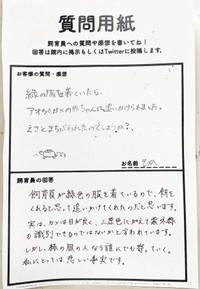 質問用紙
飼育員への質問や感想を書いてね！
回答は館内に掲示もしくはTwitterに投稿します。
お客様の質問・感想
緑の服を着ていたら、
アオウミガメのちゃんに追いかけられました。
えさとまちがわれたのでしょうか？
お名前
飼育員の回答
飼育員が緑色の服を着ているので、餌を
くれると思って追いかけてくれたのだと思います。
実は、カメは目が良く、三原色に加えて紫外線
も識別できるのではないかと言われています。
しかし、緑の服の人なら誰にでも寄っていく。
私にとっては悲しい事実です。